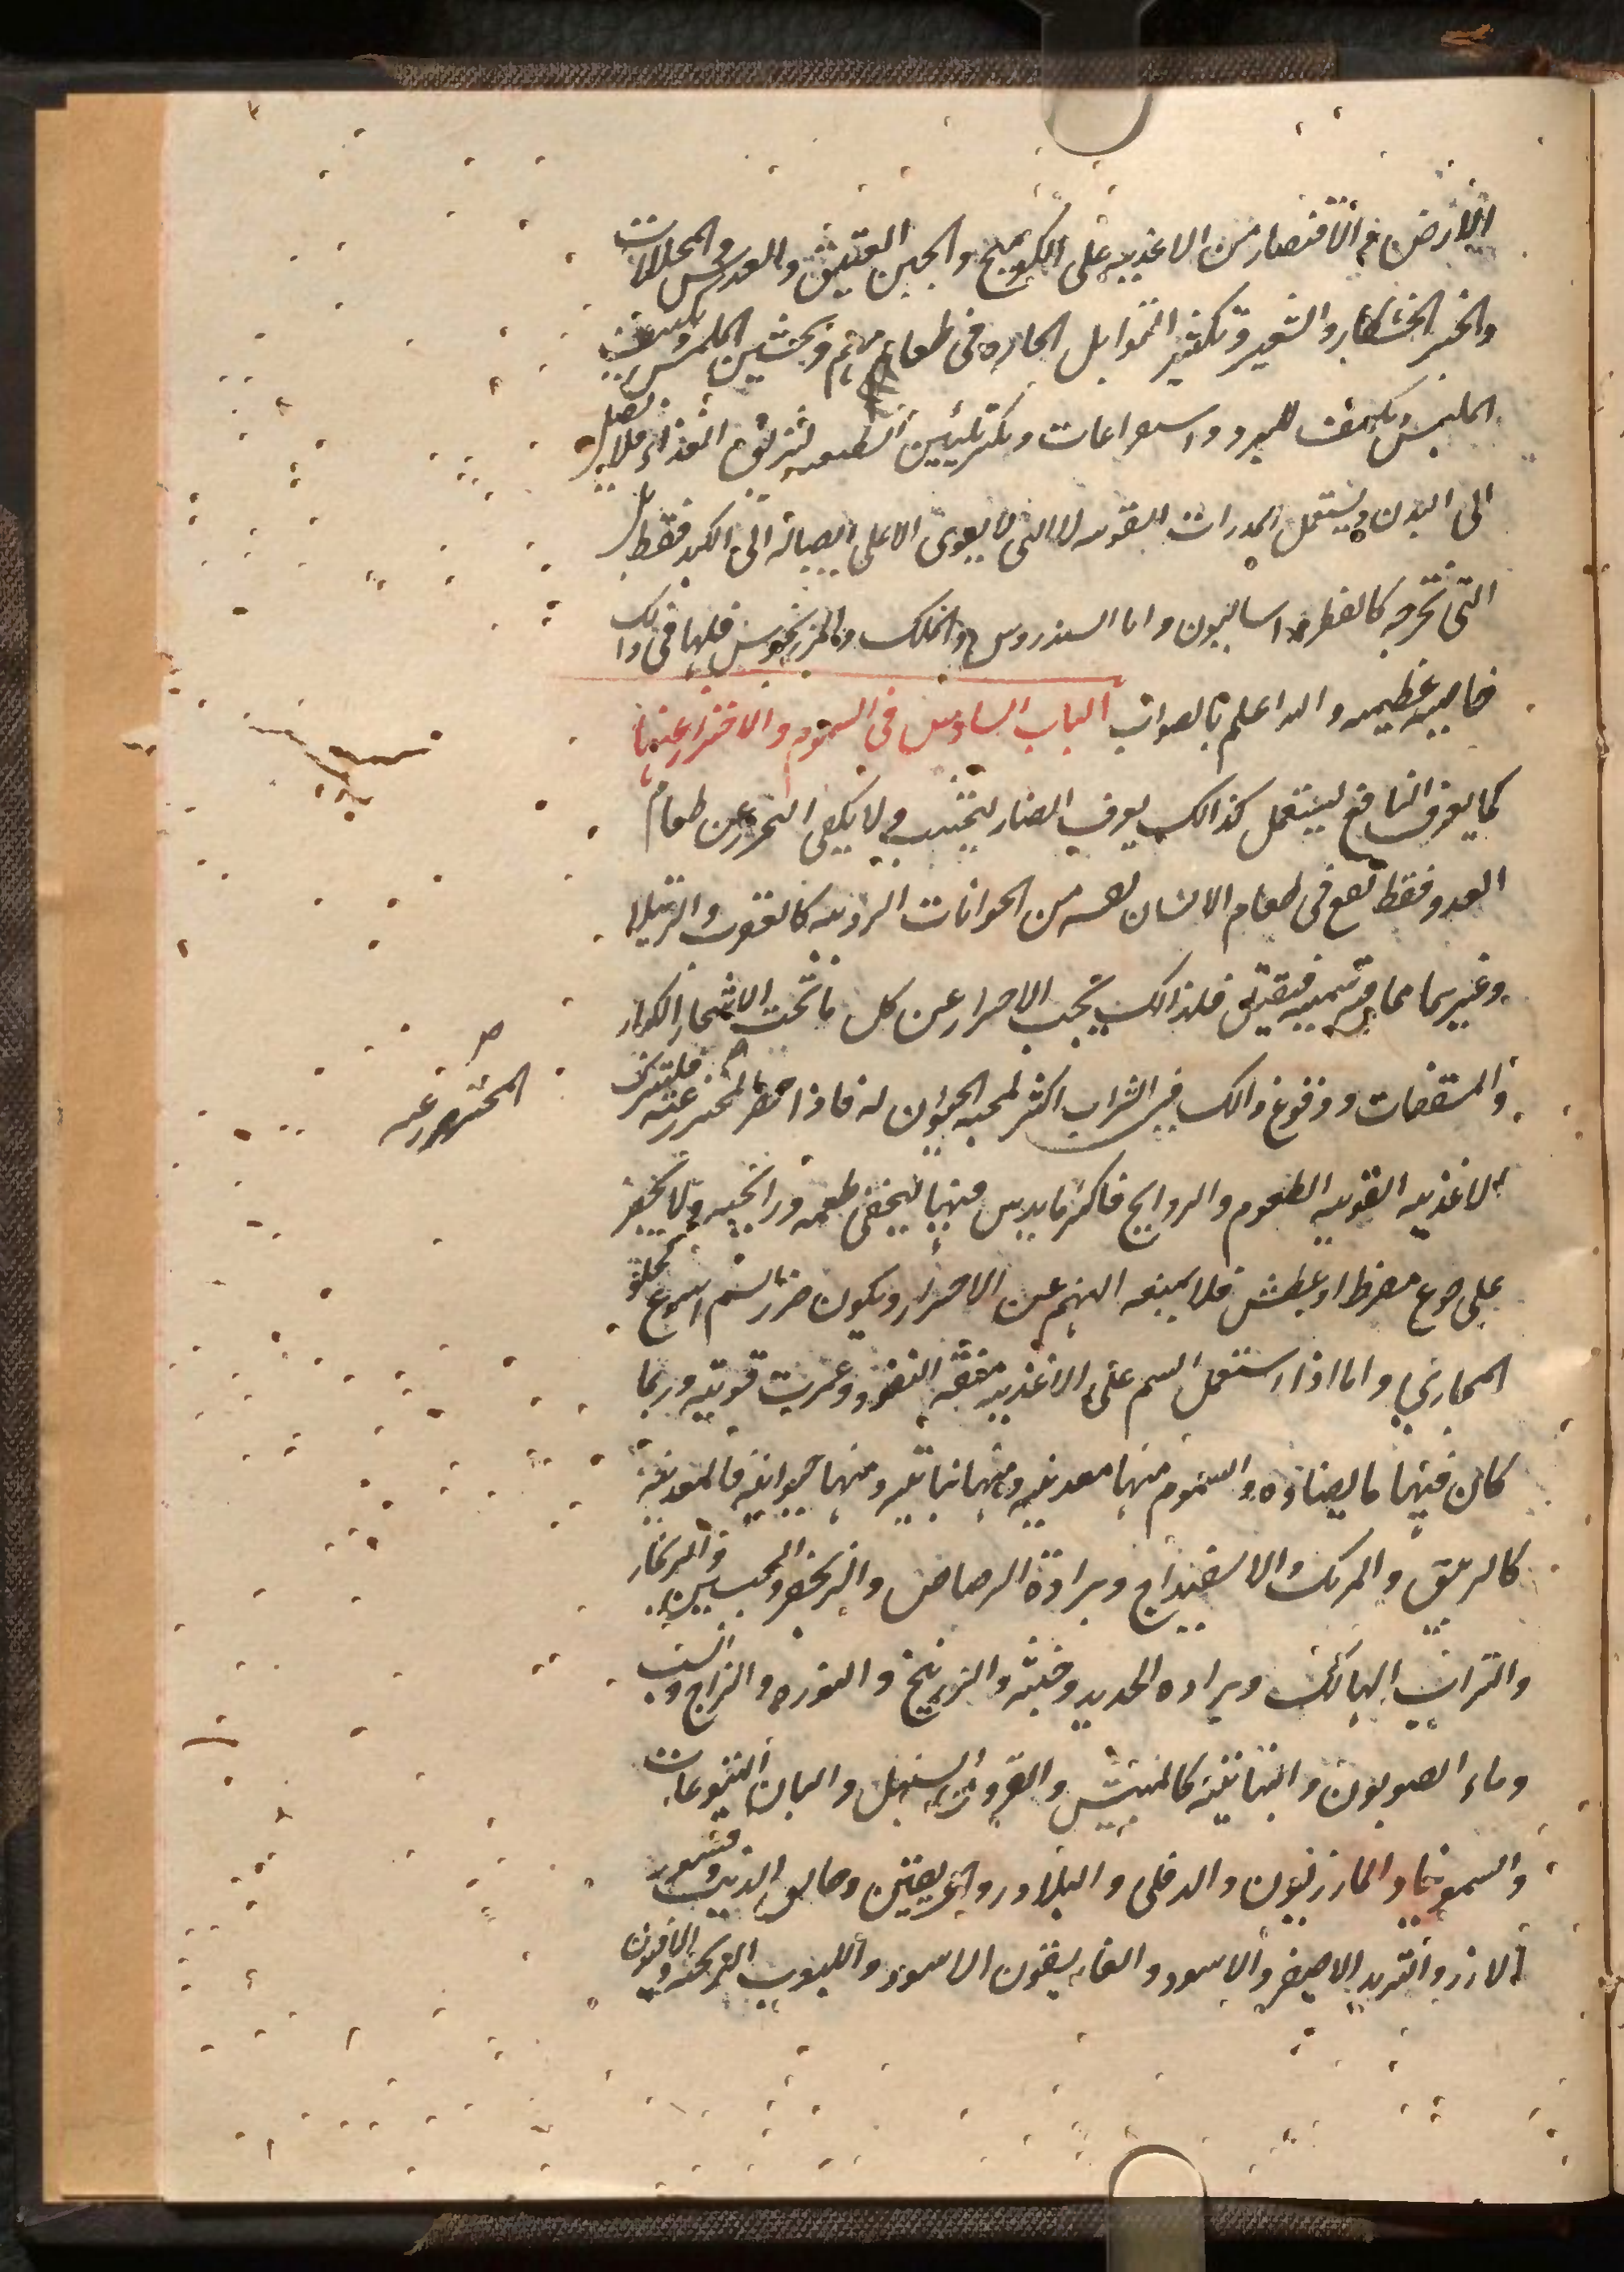 الارض في الاقتصار من الاغذيه على الكوميخ والجبن العتيق والعدس والمخللات
والخبز الخشكار والشعير وتكثير التوابل الحاره في طعامهم وتخشين الملمس
الملبس ويكشف للبرد و ويكثر تليين الطبيعه لتزلق الغذاء فلا يصل
الى البدن ويستعمل المدرات القويه لا التي لا يقوى الا على ايصاله الى الكبد فقط بل
التي تخرجه كالفطراساليون واما السندروس واللك والمرزنجوش فلها في ذالك
خاصيه عظيمه والله اعلم بالصواب الباب السادس في السموم والاحتراز عنها
كما يعرف النافع ليستعمل كذالك يعرف الضار ليجتنب ولا يكفى التحرز عن طعام
العدو فقط يقع في طعام الانسان نفسه من الحيوانات الرديه كالعقرب والرتيلا
وغيرهما مما فيه سميه فيقتل فلذالك يجب الاحتراز عن كل ما تحت الاشجار الكبار
والمسقفات ووقوع ذالك في الشراب اكثر لمحبه الحيوان له فاذا حضر المتحرز عنه فليترك
المحترز عنه
الاغذيه القويه الطعوم والروايح فاكثر ما يدس فيها ليخفى طعمه ورائحته ولا يحضر
على جوع مفرط او عطش فلا يمنعه النهم عن الاحتراز ويكون ضرر السم اسرع لخلو
المجاري واما اذا استعمل السم على الاغذيه منعته النفوذ وغمرت قوته وربما
كان فيها ما يضاده والسموم منها معدنيه ومنها نباتيه ومنها حيوانيه فالمعدنيه
كالزيبق والمرتك والاسفيداج وبرادة الرصاص والزنجفر والجبسين والزنجار
والتراب الهالك وبراده الحديد وخبثه والزرنيخ والنوره والزاج والشب
وماء الصوبون والنباتيه كالبيش والقرون السنبل والبان اليتوعات
والسمونيا والمازريون والدفلى والبلادر والخربقين وخانق الذيب وقشور
الارز والتربد الاصفر والاسود والغاريقون الاسود واللبوب المزنخه والافيون